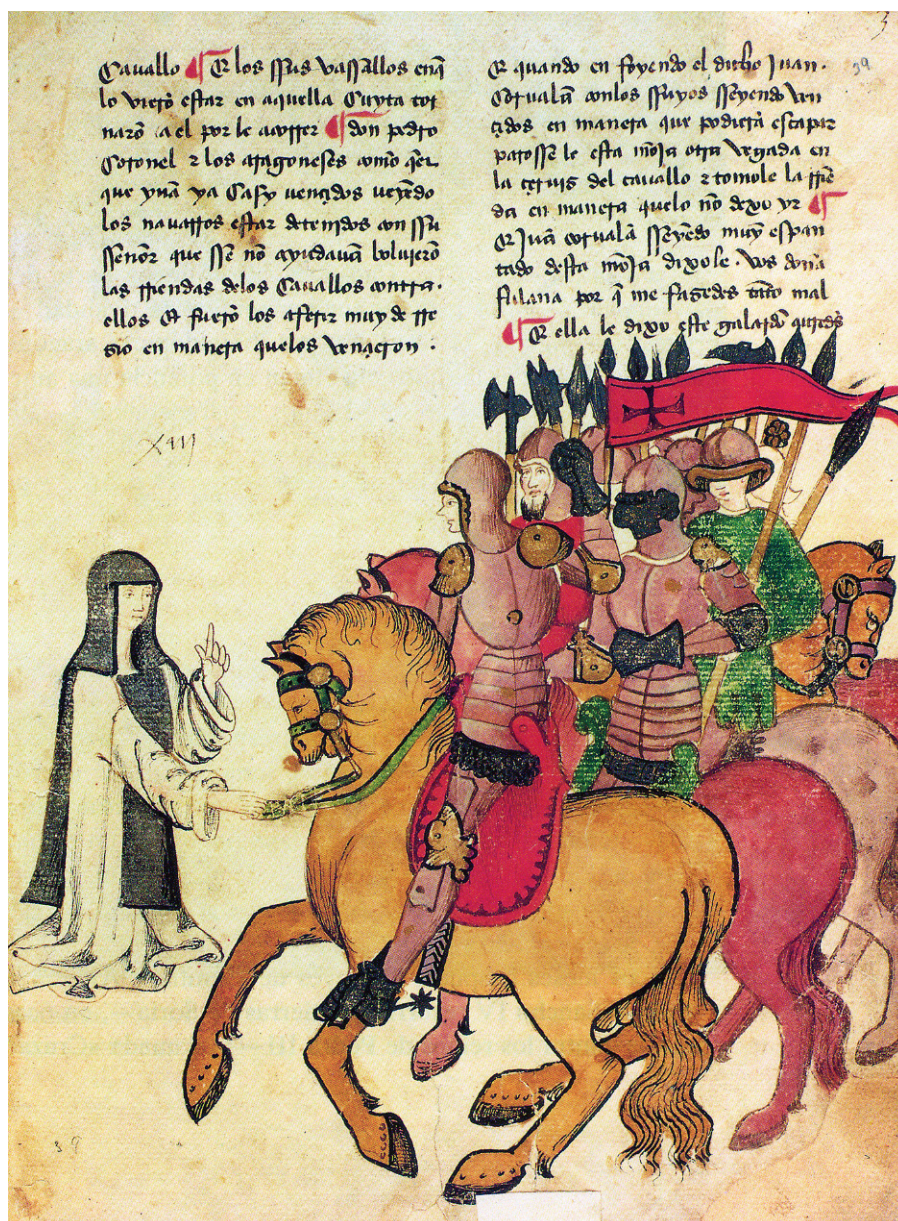 Cauallo ¶ E los ssus vassallos enq̃
lo vierõ estar en aquella Cuyta tor
narõ a el por le acorrer ¶ don pedro
Coronel τ los aragoneses como qer
que ynã ya Casy vençidos veyẽdo
los nauarros estar detenidos con ssu
sseñor que sse no ayudauã boluierõ
las rriendas delos Cauallos contra
ellos Et fuerõ los aferir muy de rre
zio en manera quelos vençieron .
E quando en foyendo el dicho Juan
Corualã conlos ssuyos sseyendo ven
çidos en manera que podierã escapar
parosse le esta mõja otra vegada en
la çeruiz del cauallo τ tomole la rriẽ
da en manera quelo nõ dexo yr ¶
E Juã corualã sseyẽdo muy espan
tado desta mõja dixole . vos doña
fulana por q̃ me fagedes tãto mal
¶ E ella le dixo este galardõ
39
XIII
39